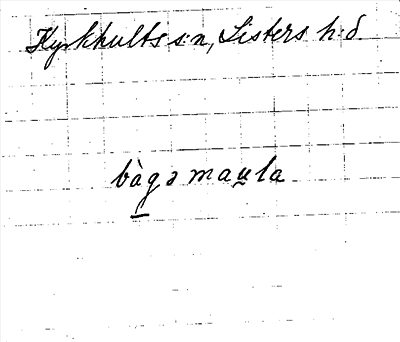 Kyrkhults s:n, Listers h:d
bàgə mau̲la